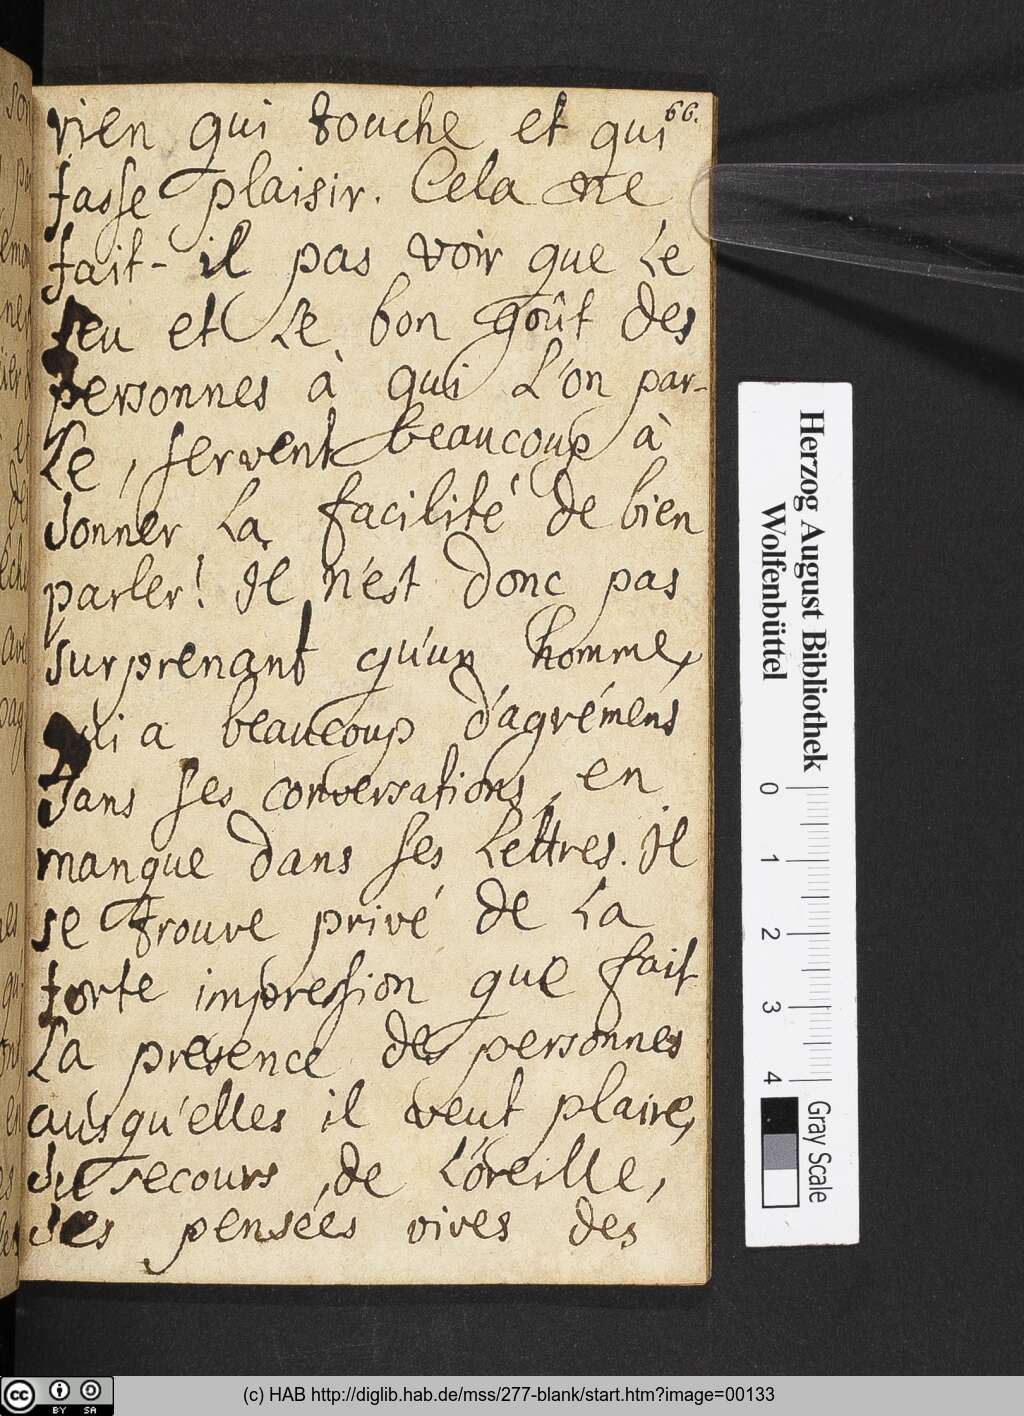 66.
rien qui touche et qui
fasse plaisir. Cela ne
fait-il pas voir que le
feu et le bon goût des
personnes à qui l'on par-
le, servent beaucoup à
donner la facilité de bien
parler! Il n'est donc pas
surprenant qu'un homme,
qui a beaucoup d'agrémens
dans ses conversations, en
manque dans ses lettres. Il
se trouve privé de la
forte impression que fait
la présence des personnes
ausqu'elles il veut plaire,
du secours, de l'oreille,
des pensées vives des
Herzog August Bibliothek
Wolfenbüttel
0 1 2 3 4
Gray Scale
cc BY SA
(c) HAB http://diglib.hab.de/mss/277-blank/start.htm?image=00133